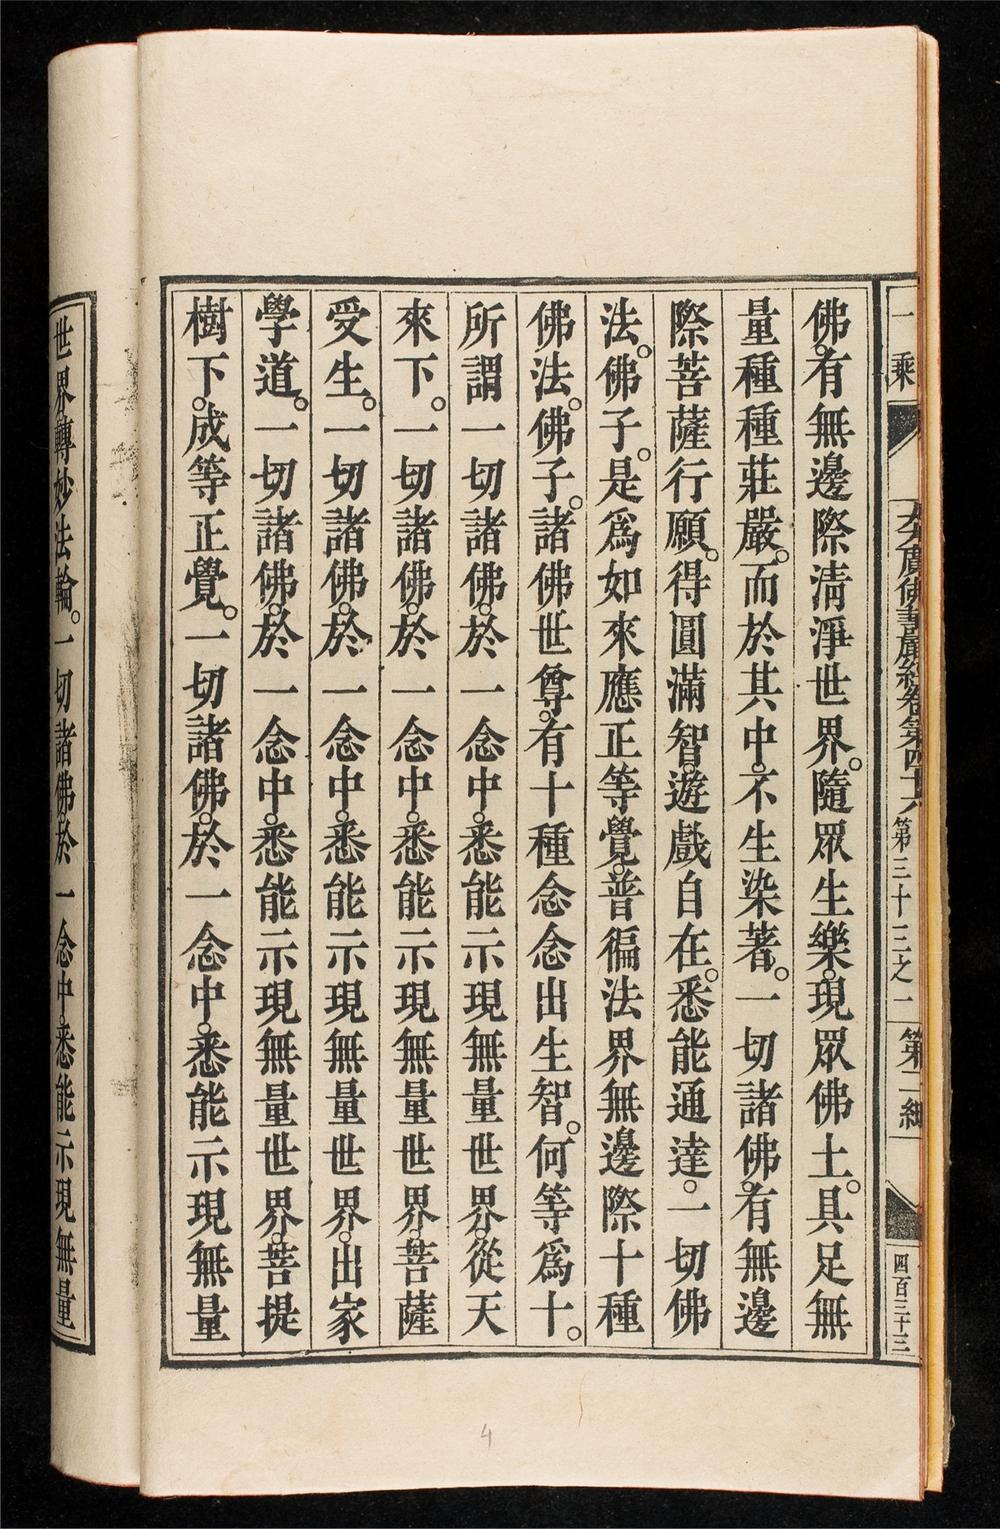 一乘
大方廣佛華嚴經卷第四十六
第三十三之一
第一
四百三十三
佛。有無邊際淸淨世界。隨眾生樂。現眾佛土。具足無
量種種莊嚴。而於其中。不生染著。一切諸佛。有無邊
際菩薩行願。得圓滿智。遊戲自在。悉能通達。一切佛
法。佛子。是爲如來應正等覺。普徧法界無邊際十種
佛法。佛子。諸佛世尊。有十種念念出生智。何等爲十。
所謂一切諸佛。於一念中。悉能示現無量世界。從天
來下。一切諸佛。於一念中。悉能示現無量世界。菩薩
受生。一切諸佛。於一念中。悉能示現無量世界。出家
學道。一切諸佛。於一念中。悉能示現無量世界。菩提
樹下。成等正覺。一切諸佛。於一念中。悉能示現無量
世界轉妙法輪。一切諸佛。於一念中。悉能示現無量